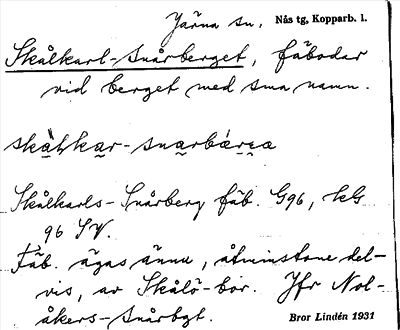 Järna sn. Nås tg, Kopparb. l.
Skålkarl-Snårberget, fäbodar
vid berget med sma namn.
skålkar-snarbärga
Skålkarls-Snårberg fäb. G96, kG
96 SV.
Fäb. ägas ännu, åtminstone del-
vis, av Skålö-bor. Jfr Nol-
åkers-Snårbgt.
Bror Lindén 1931